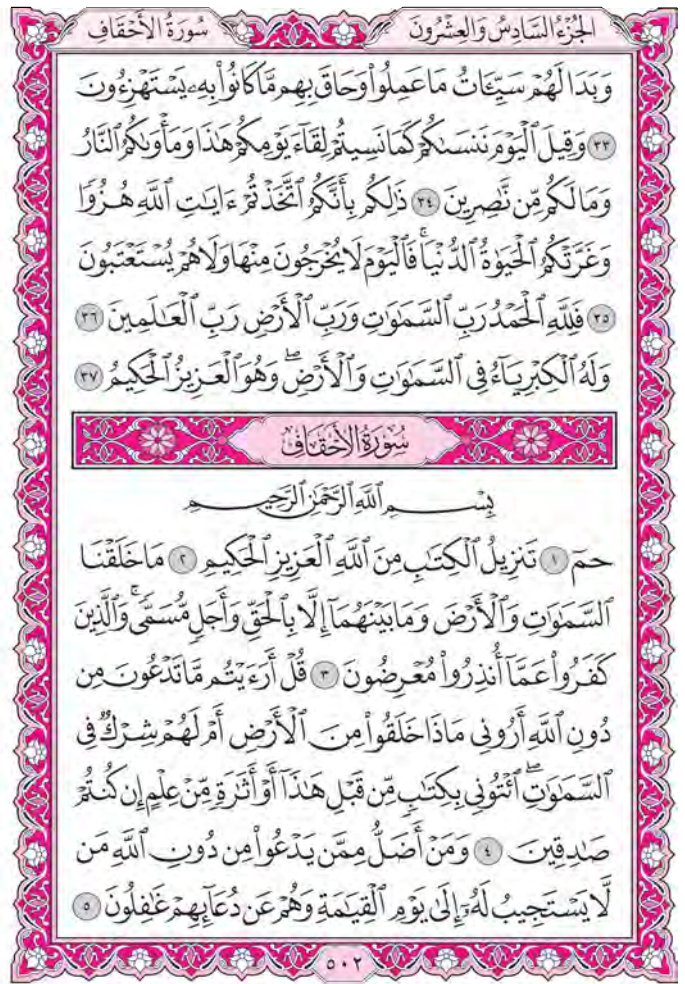 الجُزْءُ السَّادِسُ وَالعِشْرُونَ
سُورَةُ الأَحْقَافِ
وَبَدَا لَهُمْ سَيِّـَٔاتُ مَا عَمِلُوا۟ وَحَاقَ بِهِم مَّا كَانُوا۟ بِهِۦ يَسْتَهْزِءُونَ
٣٣ وَقِيلَ ٱلْيَوْمَ نَنسَىٰكُمْ كَمَا نَسِيتُمْ لِقَآءَ يَوْمِكُمْ هَـٰذَا وَمَأْوَىٰكُمُ ٱلنَّارُ
وَمَا لَكُم مِّن نَّـٰصِرِينَ ٣٤ ذَٰلِكُم بِأَنَّكُمُ ٱتَّخَذْتُمْ ءَايَـٰتِ ٱللَّهِ هُزُوًا
وَغَرَّتْكُمُ ٱلْحَيَوٰةُ ٱلدُّنْيَا ۚ فَٱلْيَوْمَ لَا يُخْرَجُونَ مِنْهَا وَلَا هُمْ يُسْتَعْتَبُونَ
٣٥ فَلِلَّهِ ٱلْحَمْدُ رَبِّ ٱلسَّمَـٰوَٰتِ وَرَبِّ ٱلْأَرْضِ رَبِّ ٱلْعَـٰلَمِينَ ٣٦
وَلَهُ ٱلْكِبْرِيَآءُ فِى ٱلسَّمَـٰوَٰتِ وَٱلْأَرْضِ ۖ وَهُوَ ٱلْعَزِيزُ ٱلْحَكِيمُ ٣٧
سُورَةُ الأَحْقَافِ
بِسْمِ ٱللَّهِ ٱلرَّحْمَـٰنِ ٱلرَّحِيمِ
حمٓ ١ تَنزِيلُ ٱلْكِتَـٰبِ مِنَ ٱللَّهِ ٱلْعَزِيزِ ٱلْحَكِيمِ ٢ مَا خَلَقْنَا
ٱلسَّمَـٰوَٰتِ وَٱلْأَرْضَ وَمَا بَيْنَهُمَآ إِلَّا بِٱلْحَقِّ وَأَجَلٍ مُّسَمًّى ۚ وَٱلَّذِينَ
كَفَرُوا۟ عَمَّآ أُنذِرُوا۟ مُعْرِضُونَ ٣ قُلْ أَرَءَيْتُم مَّا تَدْعُونَ مِن
دُونِ ٱللَّهِ أَرُونِى مَاذَا خَلَقُوا۟ مِنَ ٱلْأَرْضِ أَمْ لَهُمْ شِرْكٌ فِى
ٱلسَّمَـٰوَٰتِ ۖ ٱئْتُونِى بِكِتَـٰبٍ مِّن قَبْلِ هَـٰذَآ أَوْ أَثَـٰرَةٍ مِّنْ عِلْمٍ إِن كُنتُمْ
صَـٰدِقِينَ ٤ وَمَنْ أَضَلُّ مِمَّن يَدْعُوا۟ مِن دُونِ ٱللَّهِ مَن
لَّا يَسْتَجِيبُ لَهُۥٓ إِلَىٰ يَوْمِ ٱلْقِيَـٰمَةِ وَهُمْ عَن دُعَآئِهِمْ غَـٰفِلُونَ ٥
٥٠٢